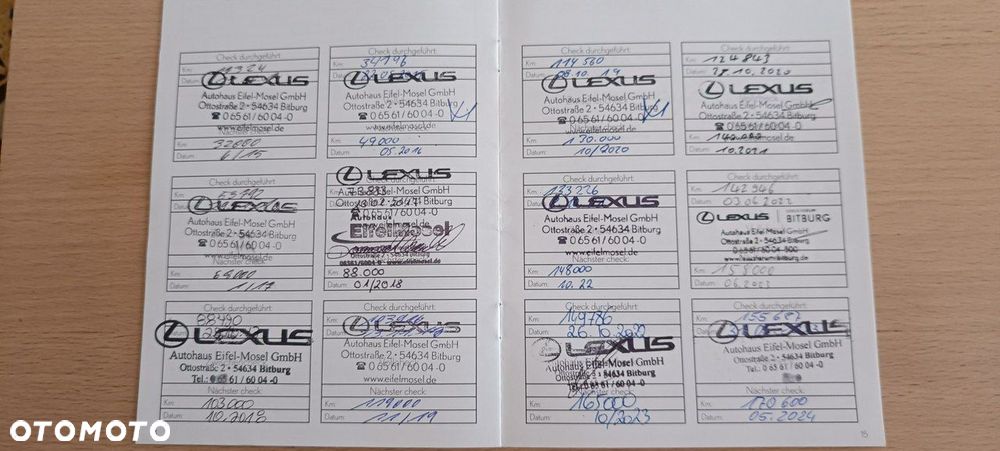 Check durchgeführt:
Km: 17324
LEXUS
Autohaus Eifel-Mosel GmbH
Ottostraße 2 • 54634 Bitburg
☎ 0 65 61 / 60 04 -0
www.eifelmosel.de
Km: 32000
Datum: 6/15
Check durchgeführt:
Km: 34196
LEXUS
Autohaus Eifel-Mosel GmbH
Ottostraße 2 • 54634 Bitburg
☎ 0 65 61 / 60 04 -0
www.eifelmosel.de
Km: 49000
Datum: 05.2016
Check durchgeführt:
LEXUS
Autohaus Eifel-Mosel GmbH
Ottostraße 2 • 54634 Bitburg
☎ 0 65 61 / 60 04 -0
Datum: 1/17
LEXUS
73.833
Autohaus Eifel-Mosel GmbH
☎ 0 65 61 / 60 04 -0
Autohaus
Eifelmosel
Km: 88.000
Datum: 01/2018
Check durchgeführt:
88490
LEXUS
Autohaus Eifel-Mosel GmbH
Ottostraße 2 • 54634 Bitburg
Tel.: 61 / 60 04 -0
Nächster check:
Km: 103000
Datum: 10.2018
Check durchgeführt:
LEXUS
Autohaus Eifel-Mosel GmbH
Ottostraße 2 • 54634 Bitburg
☎ 0 65 61 / 60 04 -0
www.eifelmosel.de
Nächster check:
Km: 119000
Datum: 11/19
Check durchgeführt:
Km: 114560
Datum: 08.10.19
LEXUS
Autohaus Eifel-Mosel GmbH
Ottostraße 2 • 54634 Bitburg
☎ 0 65 61 / 60 04 -0
www.eifelmosel.de
Km: 130.000
Datum: 10/2020
Check durchgeführt:
Km: 124843
Datum: 28.10.2020
LEXUS
Autohaus Eifel-Mosel GmbH
Ottostraße 2 • 54634 Bitburg
☎ 0 65 61 / 60 04 -0
www.eifelmosel.de
Km: 140.000
Datum: 10.2021
Check durchgeführt:
Km: 133226
LEXUS
Autohaus Eifel-Mosel GmbH
Ottostraße 2 • 54634 Bitburg
☎ 0 65 61 / 60 04 -0
www.eifelmosel.de
Km: 148000
Datum: 10.22
Check durchgeführt:
Km: 142946
Datum: 03.06.2022
LEXUS BITBURG
Autohaus Eifel-Mosel GmbH
Ottostraße 2 • 54634 Bitburg
Km: 158000
Datum: 06.2023
Check durchgeführt:
Km: 149786
Datum: 26.10.2022
LEXUS
Autohaus Eifel-Mosel GmbH
54634 Bitburg
Nächster check:
Km: 165000
Datum: 10/2023
Check durchgeführt:
Km: 155687
LEXUS
Autohaus Eifel-Mosel GmbH
Ottostraße 2 • 54634 Bitburg
Tel.: 0 65 61 / 60 04 -0
Nächster check:
Km: 170600
Datum: 05.2024
15
OTOMOTO